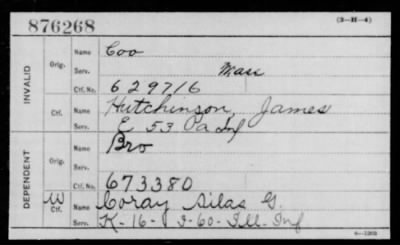 876268
(3-H-4)
INVALID
Orig.
Name
Coo
Serv.
Ctf. No.
629716
Ctf.
Name
Hutchinson, James
Serv.
E 53 Pa Inf
DEPENDENT
Orig.
Name
Bro
Serv.
Ctf. No.
673380
W
Ctf.
Name
Coray Silas G.
Serv.
K-16- I-60-Ill-Inf